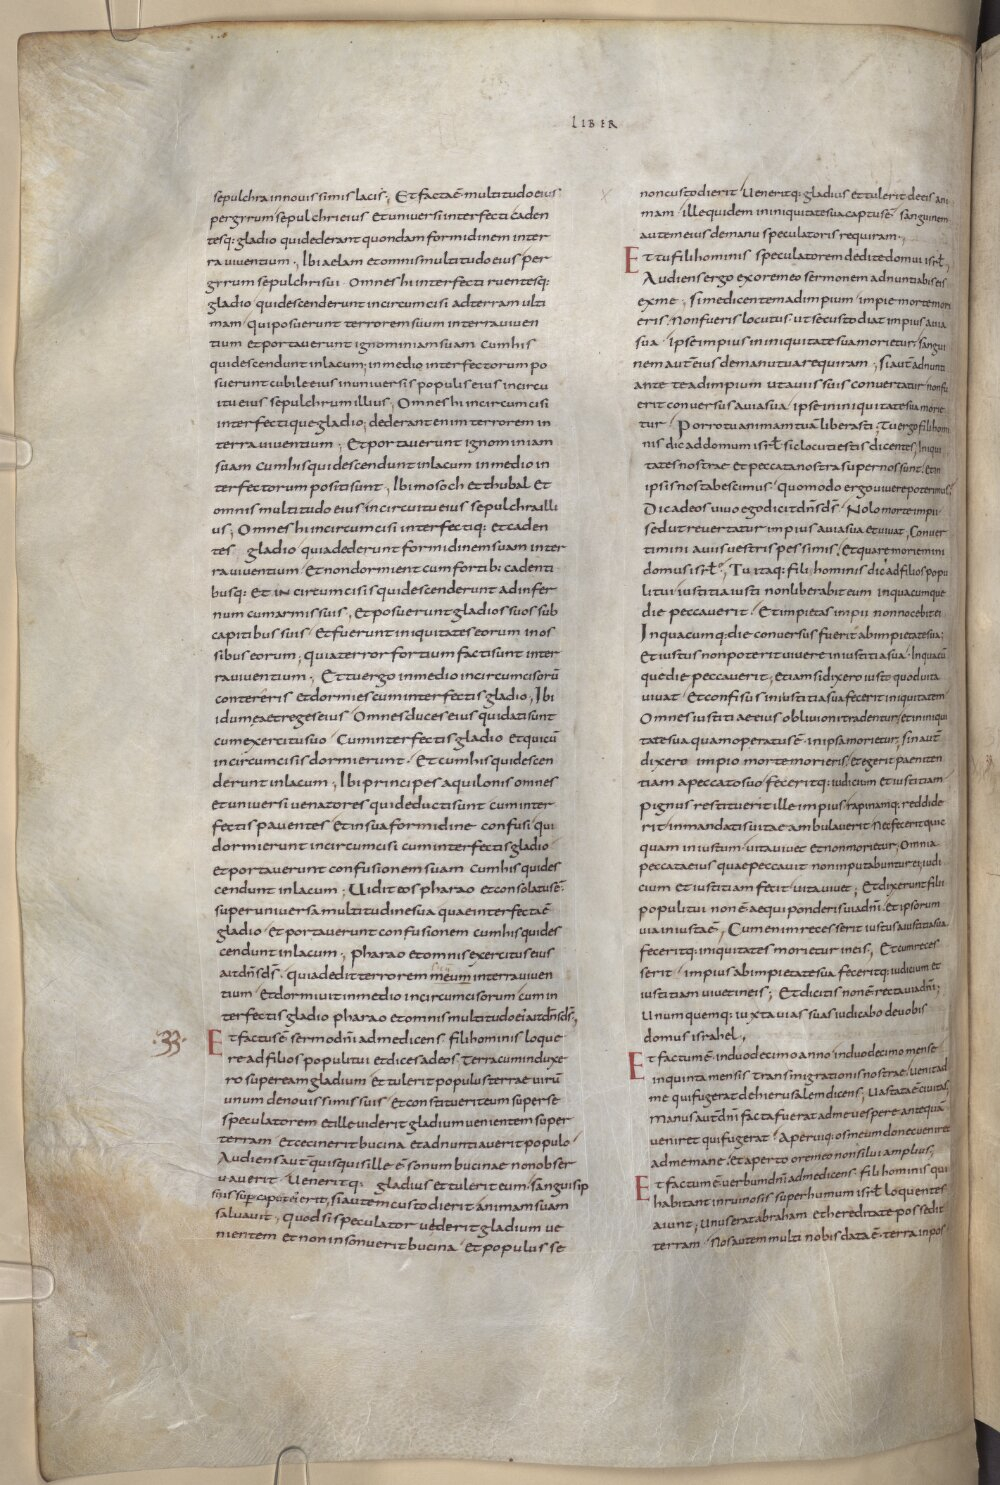 LIBER
sepulchra in novissimis lacis; Et facta ē multitudo eius
per gyrum sepulchri eius et universi interfecti caden
tesq: gladio qui dederant quondam formidinem in ter
ra viventium; Ibi aelam et omnis multitudo eius per
gyrum sepulchri sui Omnes hi interfecti ruentesq:
gladio qui descenderunt incircumcisi ad terram ulti
mam qui posuerunt terrorem suum in terra viven
tium et portaverunt ignominiam suam cum his
qui descendunt in lacum; in medio interfectorum po
suerunt cubile eius in universis populis eius in circu
itu eius sepulchrum illius; Omnes hi incircumcisi
interfectique gladio; dederant enim terrorem in
terra viventium; Et portaverunt ignominiam
suam cum his qui descendunt in lacum in medio in
terfectorum positi sunt; Ibi mosoch et thubal et
omnis multitudo eius in circuitu eius sepulchra illi
us; Omnes hi incircumcisi interfectiq: et caden
tes gladio quia dederunt formidinem suam in ter
ra viventium Et non dormient cum fortib: cadenti
busq: et incircumcisis qui descenderunt ad infer
num cum armis suis; Et posuerunt gladios suos sub
capitibus suis Et fuerunt iniquitates eorum in os
sibus eorum; quia terror fortium facti sunt in ter
ra viventium; Et tu ergo in medio incircumcisorū
contereris et dormies cum interfectis gladio; Ibi
idumea et reges eius Omnes duces eius qui dati sunt
cum exercitu suo Cum interfectis gladio et qui cū
incircumcisis dormierunt Et cum his qui descen
derunt in lacum; Ibi principes aquilonis omnes
et universi venatores qui deducti sunt cum inter
fectis paventes Et in sua formidine confusi qui
dormierunt incircumcisi cum interfectis gladio
et portaverunt confusionem suam cum his qui des
cendunt in lacum; Vidit eos pharao et consolatus ē
super universa multitudine sua quae interfecta ē
gladio et portaverunt confusionem cum his qui des
cendunt in lacum; pharao et omnis exercitus eius
ait dn̄s d̄s quia dedit terrorem meum in terra viven
tium Et dormivit in medio incircumcisorum cum in
terfectis gladio pharao et omnis multitudo ei' ait dn̄s d̄s;
33 Et factus ē sermo dn̄i ad me dicens fili hominis loque
re ad filios populi tui et dices ad eos Terra cum induxe
ro super eam gladium et tulerit populus terrae virū
unum de novissimis suis et constituerit eum super se
speculatorem et ille viderit gladium venientem super
terram et cecinerit bucina et adnuntiaverit populo
Audiens aut̄ quisquis ille ē sonum bucinae non obser
vaverit Veneritq: gladius et tulerit eum sanguis ip
sius sup caput ei' erit, si autem custodierit animam suam
salvavit; Quod si speculator viderit gladium ve
nientem et non insonuerit bucina et populus se
non custodierit Veneritq: gladius et tulerit de eis ani
mam ille quidem in iniquitate sua captus ē sanguinem
autem eius de manu speculatoris requiram;
Et tu fili hominis speculatorem dedi te domui isrl̄
Audiens ergo ex ore meo sermonem adnuntiabis eis
ex me; si me dicentem ad impium impie morte mori
eris Non fueris locutus ut se custodiat impius a via
sua ipse impius in iniquitate sua morietur; sangui
nem aut̄ eius de manu tua requiram; si aut̄ adnunti
ante te ad impium ut a viis suis convertatur non fu
erit conversus a via sua ipse in iniquitate sua morie
tur Porro tu animam tuā liberasti; Tu ergo fili homi
nis dic ad domum isrl̄ sic locuti estis dicentes; Iniqui
tates nostrae et peccata nostra super nos sunt et in
ipsis nos tabescimus quomodo ergo vivere poterimus;
Dic ad eos vivo ego dicit dn̄s d̄s Nolo morte impii
sed ut revertatur impius a via sua et vivat; Conver
timini a viis vestris pessimis; Et quare moriemini
domus isrl̄; Tu itaq: fili hominis dic ad filios popu
li tui iustitia iusti non liberabit eum in quacumque
die peccaverit Et impietas impii non nocebit ei
In quacumq: die conversus fuerit ab impietate sua;
Et iustus non poterit vivere in iustitia sua In quacū
que die peccaverit, etiam si dixero iusto quod vita
vivat Et confisus in iustitia sua fecerit iniquitatem
Omnes iustitiae eius oblivioni tradentur, et in iniqui
tate sua quam operatus ē in ipsa morietur; sin aut̄
dixero impio morte morieris, et egerit paeniten
tiam a peccato suo feceritq: iudicium et iustitiam
Pignus restituerit ille impius rapinamq: reddide
rit in mandatis vitae ambulaverit Nec fecerit quic
quam iniustum vita vivet et non morietur; Omnia
peccata eius quae peccavit non inputabuntur ei; iudi
cium et iustitiam fecit vita vivet; Et dixerunt filii
populi tui non ē aequi ponderis via dn̄i et ipsorum
via iniusta ē; Cum enim recesserit iustus a iustitia sua
feceritq: iniquitates morietur in eis; Et cum reces
serit impius ab impietate sua feceritq: iudicium et
iustitiam vivet in eis; Et dicitis non ē recta via dn̄i;
Unumquemq: iuxta vias suas iudicabo de vobis
domus israhel;
Et factum ē in duodecimo anno in duodecimo mense
in quinta mensis transmigrationis nostrae Venit ad
me qui fugerat de hierusalem dicens; Vastata ē civitas
Manus aut̄ dn̄i facta fuerat ad me vespere antequā
veniret qui fugerat Aperuitq: os meum donec veniret
ad me mane Et aperto ore meo non silui amplius;
Et factum ē verbum dn̄i ad me dicens fili hominis qui
habitant in ruinosis super humum isrl̄ loquentes
aiunt; Unus erat abraham et hereditate possedit
terram Nos autem multi nobis data ē terra in pos